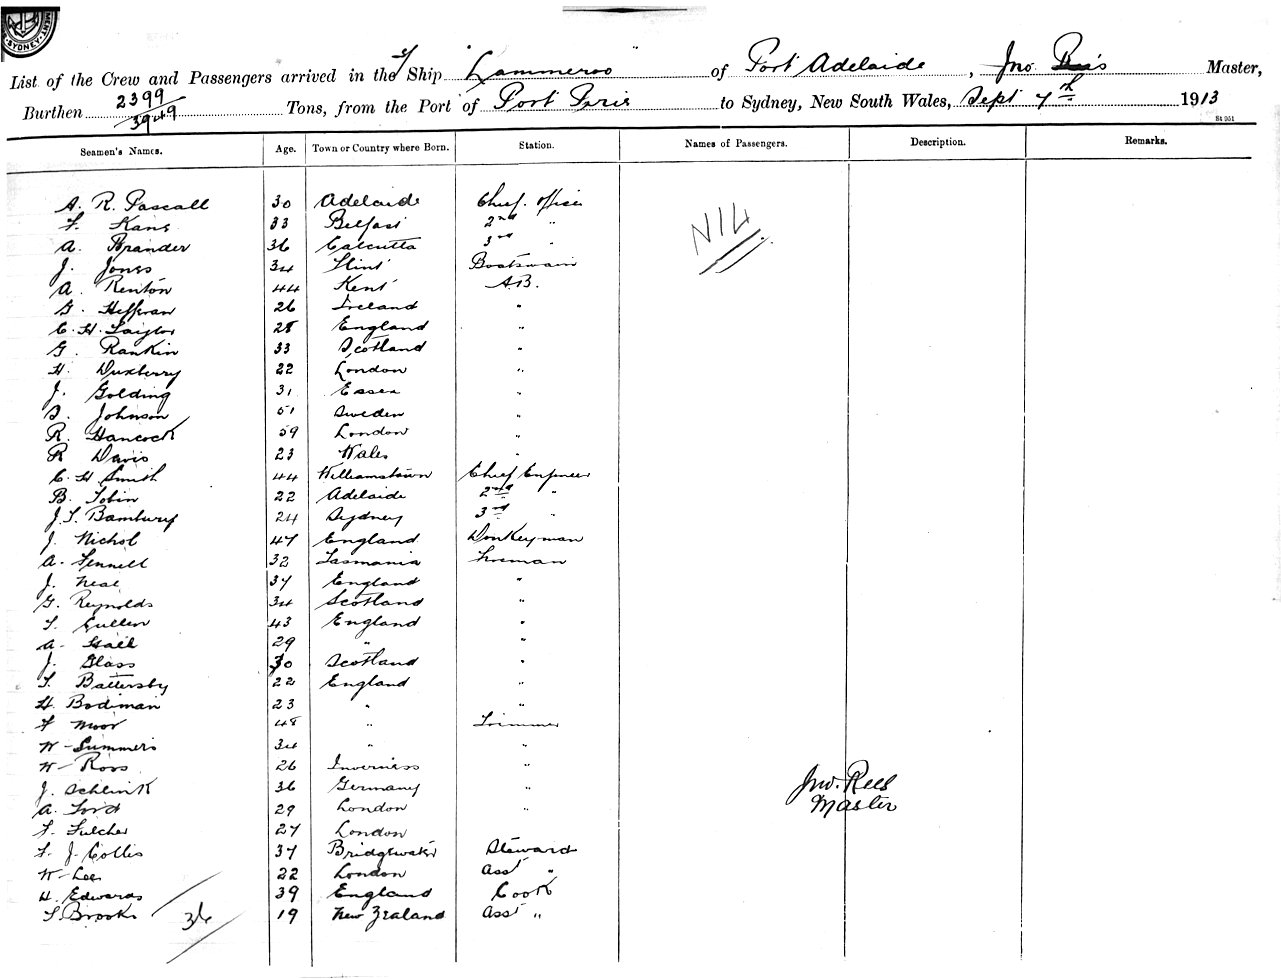 SYDNEY
List of the Crew and Passengers arrived in the S/ Ship "Lammeroo" of Port Adelaide, Jno Rees Master,
Burthen 2399/3949 Tons, from the Port of Port Pirie to Sydney, New South Wales, Sept 7th 1913
St 951
Seamen's Names. Age. Town or Country where Born. Station. Names of Passengers. Description. Remarks.
A. R. Pascall 30 Adelaide Chief Officer
F. Kans 33 Belfast 2nd "
A. Brander 36 Calcutta 3rd "
NIL
J. Jones 34 Flint Boatswain
A. Renton 44 Kent A.B.
G. Heffran 26 Ireland "
C. H. Taylor 28 England "
G. Rankin 33 Scotland "
H. Duxberry 22 London "
J. Golding 31 Essex "
J. Johnson 51 Sweden "
R. Hancock 59 London "
R Davis 23 Wales "
C. H Smith 44 Williamstown Chief Engineer
B. Tobin 22 Adelaide 2nd "
J. S. Bambury 24 Sydney 3rd "
J. Nichol 47 England Donkeyman
A. Fennell 32 Tasmania Fireman
J. Neal 37 England "
G. Reynolds 34 Scotland "
T. Cullen 43 England "
A. Hall 29 " "
J. Glass 30 Scotland "
T. Battersby 22 England "
H. Bodiman 23 " "
F Moor 48 " Trimmer
W Summers 34 " "
W Ross 26 Inverness "
J. Schlink 36 Germany "
A. Ford 29 London "
F. Fulcher 27 London
F. J. Collis 37 Bridgewater Steward
W Lee 22 London Asst "
H. Edwards 39 England Cook
T. Brooks 19 New Zealand Asst "
36
Jno. Rees
Master